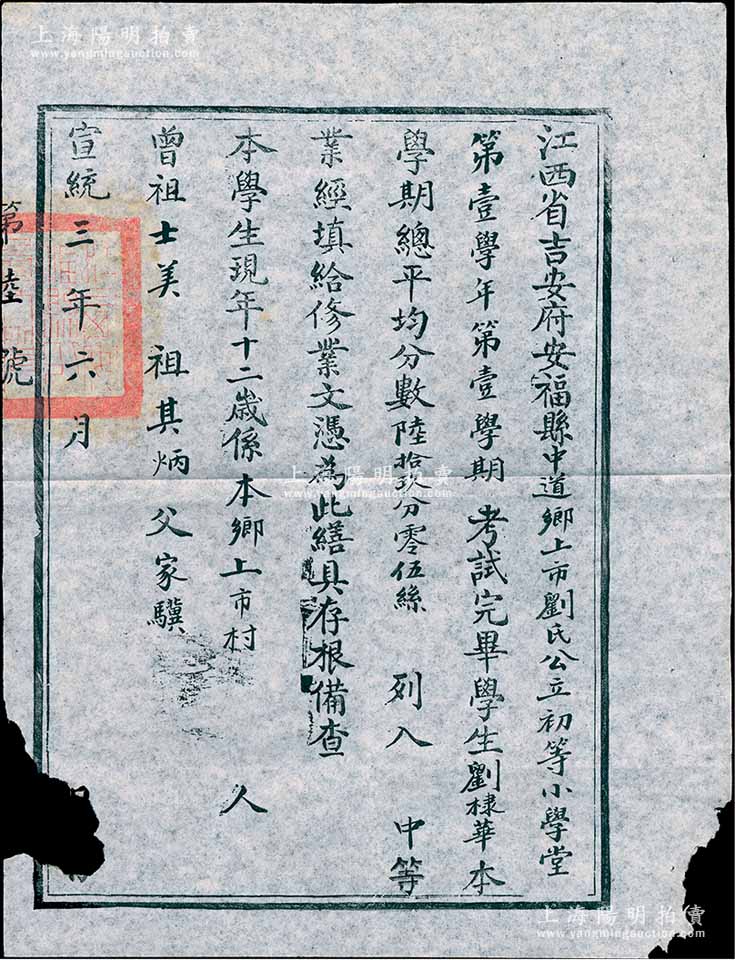 江西省吉安府安福縣中道鄉上市劉氏公立初等小學堂
第壹學年第壹學期考試完畢學生劉棣華本
學期總平均分數陸拾玖分零伍絲 列入 中等
業經填給修業文憑為此繕具存根備查
本學生現年十二歲係本鄉上市村 人
曾祖士美 祖其炳 父家驥
宣統三年六月 日
第陸號
上海陽明拍賣
www.yangmingauction.com
上海陽明拍賣
www.yangmingauction.com
上海陽明拍賣
www.yangmingauction.com